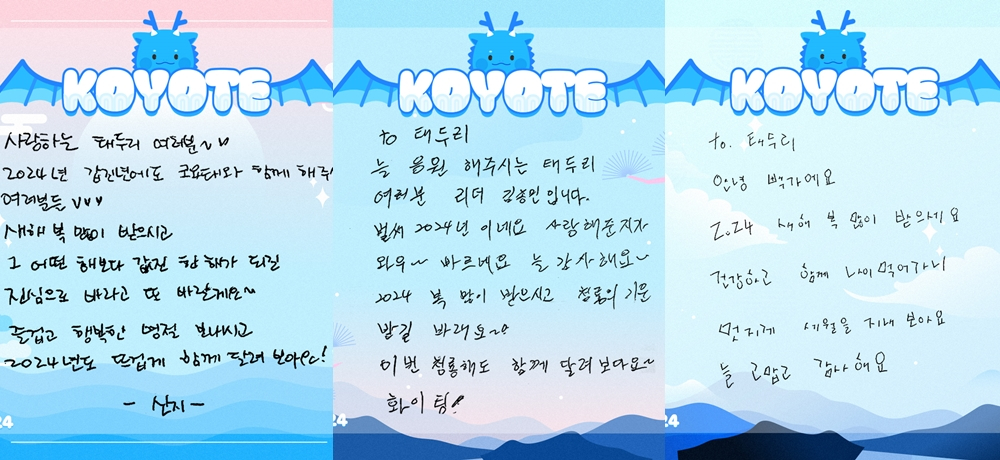 KOYOTE
사랑하는 태두리 여러분~♡♡
2024년 갑진년에도 코요태와 함께 해주
여려분들 ♡♡♡
새해 복 많이 받으시고
그 어떤 해보다 값진 한해가 되길
진심으로 바라고 또 바랄게요~
즐겁고 행복한 명절 보내시고
2024년도 뜨겁게 함께 달려 보아요!
- 신지 -
24
KOYOTE
to 태두리
늘 응원 해주시는 태두리
여러분 리더 김종민입니다.
벌써 2024년 이네요 사랑해준지가
와우~ 빠르네요 늘 감사해요~
2024 복 많이 받으시고 청룡의 기운
받길 바래요~
이번 청룡해도 함께 달려보아요~
화이팅!
24
KOYOTE
to. 태두리
안녕 빽가예요
2024 새해 복 많이 받으세요
건강하고 함께 나이먹어가니
멋지게 세월을 지내보아요
늘 고맙고 감사해요